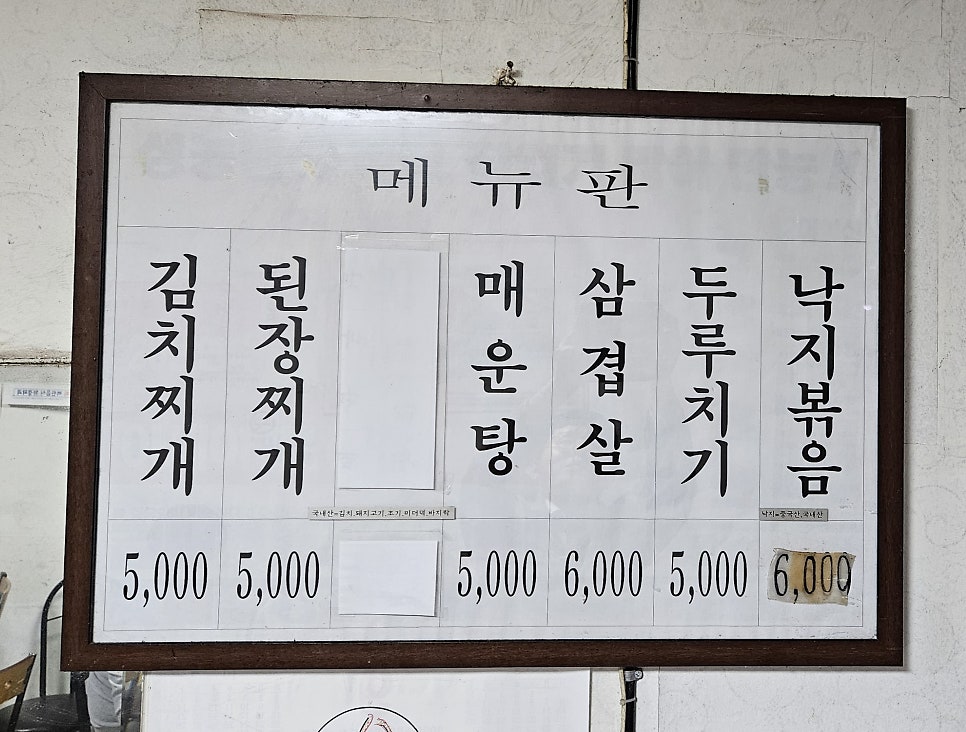 메뉴판
김치찌개
된장찌개
매운탕
삼겹살
두루치기
낙지볶음
국내산=김치,돼지고기,조기,미더덕,바지락
낙지=중국산,국내산
5,000
5,000
5,000
6,000
5,000
6,000